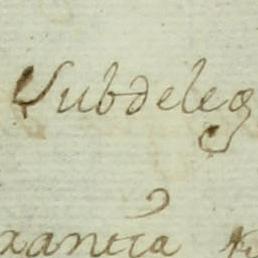 Subdeleg
xantia